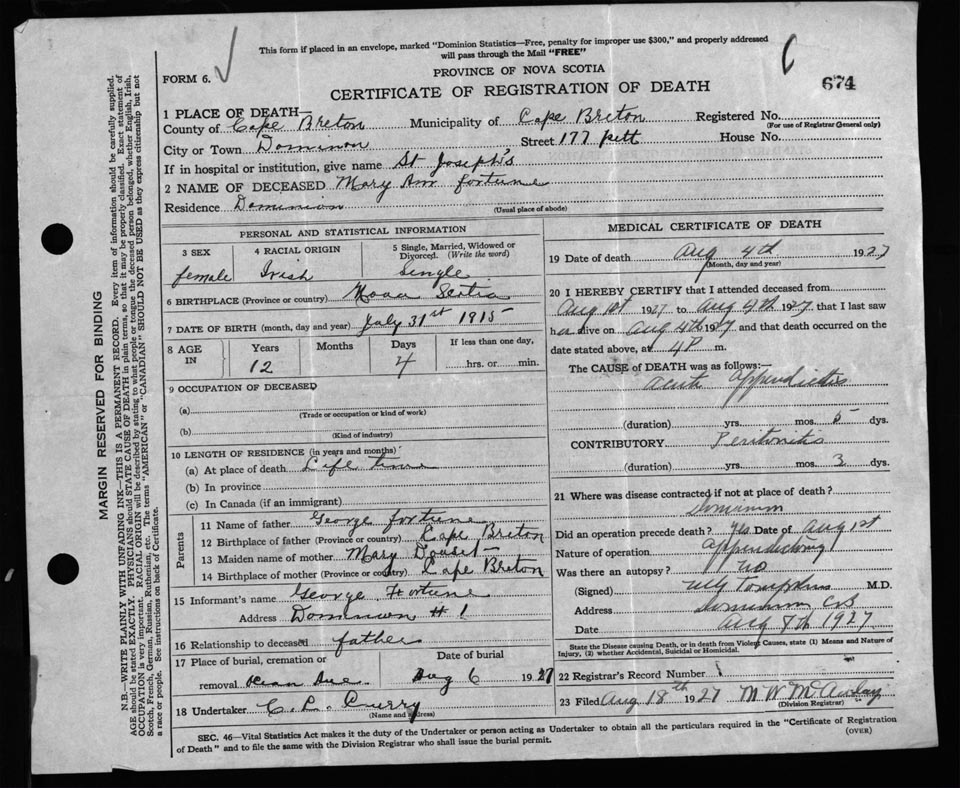 This form if placed in an envelope, marked "Dominion Statistics—Free, penalty for improper use $300," and properly addressed
will pass through the Mail "FREE"
FORM 6.
PROVINCE OF NOVA SCOTIA
CERTIFICATE OF REGISTRATION OF DEATH
674
1 PLACE OF DEATH—
County of Cape Breton Municipality of Cape Breton Registered No.
(For use of Registrar General only)
City or Town Dominion Street 177 pitt House No.
If in hospital or institution, give name St Joseph's
2 NAME OF DECEASED Mary Ann Fortune
Residence Dominion
(Usual place of abode)
PERSONAL AND STATISTICAL INFORMATION
3 SEX 4 RACIAL ORIGIN 5 Single, Married, Widowed or
Divorced. (Write the word)
female Irish Single
6 BIRTHPLACE (Province or country) Nova Scotia
7 DATE OF BIRTH (month, day and year) July 31st 1915
8 AGE IN Years Months Days If less than one day,
12 4 hrs. or min.
9 OCCUPATION OF DECEASED
(a)
(Trade or occupation or kind of work)
(b)
(Kind of industry)
10 LENGTH OF RESIDENCE (in years and months)
(a) At place of death Life time
(b) In province
(c) In Canada (if an immigrant)
Parents
11 Name of father George Fortune
12 Birthplace of father (Province or country) Cape Breton
13 Maiden name of mother Mary
14 Birthplace of mother (Province or country) Cape Breton
15 Informant's name George Fortune
Address Dominion # 1
16 Relationship to deceased father
17 Place of burial, cremation or Date of burial
removal Aug 6 1927
18 Undertaker C. L. Curry
(Name and address)
MEDICAL CERTIFICATE OF DEATH
19 Date of death Aug 4th 1927
(Month, day and year)
20 I HEREBY CERTIFY that I attended deceased from
Aug 1st 1927 to Aug 4th 1927 that I last saw
her alive on Aug 4th 1927 and that death occurred on the
date stated above, at 4 P m.
The CAUSE of DEATH was as follows:—
acute appendicitis
(duration) yrs. mos. 5 dys.
CONTRIBUTORY Peritonitis
(duration) yrs. mos. 3 dys.
21 Where was disease contracted if not at place of death?
Dominion
Did an operation precede death? Yes Date of Aug 1st
Nature of operation
Was there an autopsy? no
(Signed) Tompkins M.D.
Address Dominion CB
Date Aug 8th 1927
State the Disease causing Death, or in death from Violent Causes, state (1) Means and Nature of
Injury, (2) whether Accidental, Suicidal or Homicidal.
22 Registrar's Record Number 1
23 Filed Aug 18th 1927 M W McAulay
(Division Registrar)
SEC. 46—Vital Statistics Act makes it the duty of the Undertaker or person acting as Undertaker to obtain all the particulars required in the "Certificate of Registration
of Death" and to file the same with the Division Registrar who shall issue the burial permit.
(OVER)
MARGIN RESERVED FOR BINDING
N.B.—WRITE PLAINLY WITH UNFADING INK—THIS IS A PERMANENT RECORD. Every item of information should be carefully supplied.
AGE should be stated EXACTLY. PHYSICIANS should STATE CAUSE OF DEATH in plain terms, so that it may be properly classified. Exact statement of
OCCUPATION is very important. RACIAL ORIGIN will be described by stating to what people or tongue the deceased person belonged, whether English, Irish,
Scotch, French, German, Russian, Ruthenian, etc. The terms "AMERICAN" or "CANADIAN" SHOULD NOT BE USED as they express citizenship but not
a race or people. See instructions on back of Certificate.